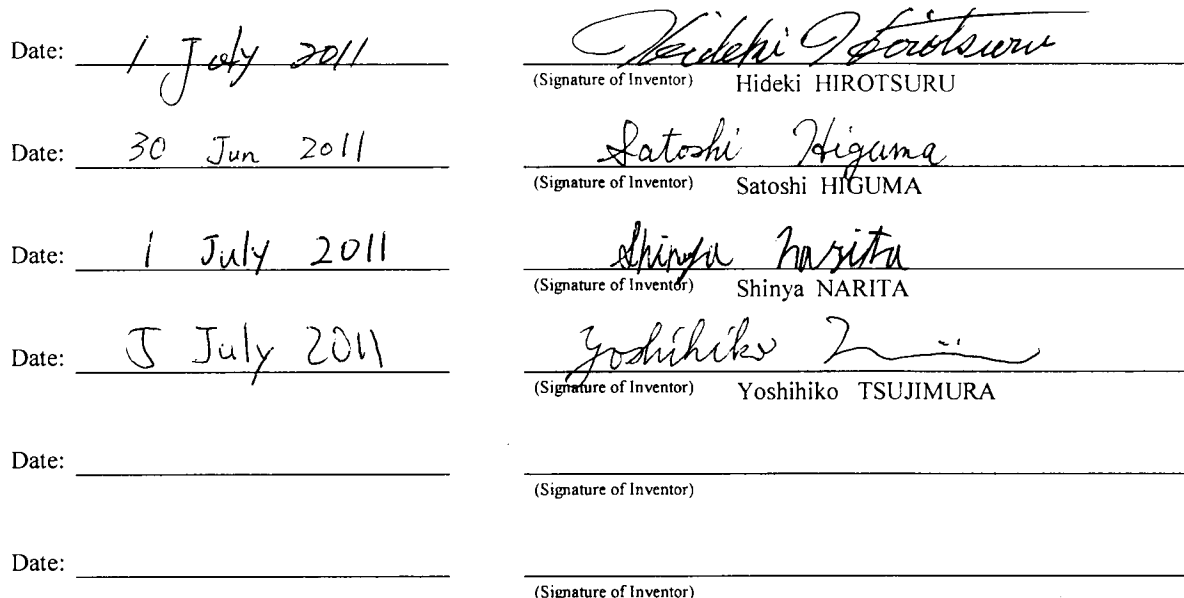 Date: 1 July 2011 Hideki Hirotsuru
(Signature of Inventor) Hideki HIROTSURU
Date: 30 Jun 2011 Satoshi Higuma
(Signature of Inventor) Satoshi HIGUMA
Date: 1 July 2011 Shinya Narita
(Signature of Inventor) Shinya NARITA
Date: 5 July 2011 Yoshihiko
(Signature of Inventor) Yoshihiko TSUJIMURA
Date:
(Signature of Inventor)
Date:
(Signature of Inventor)